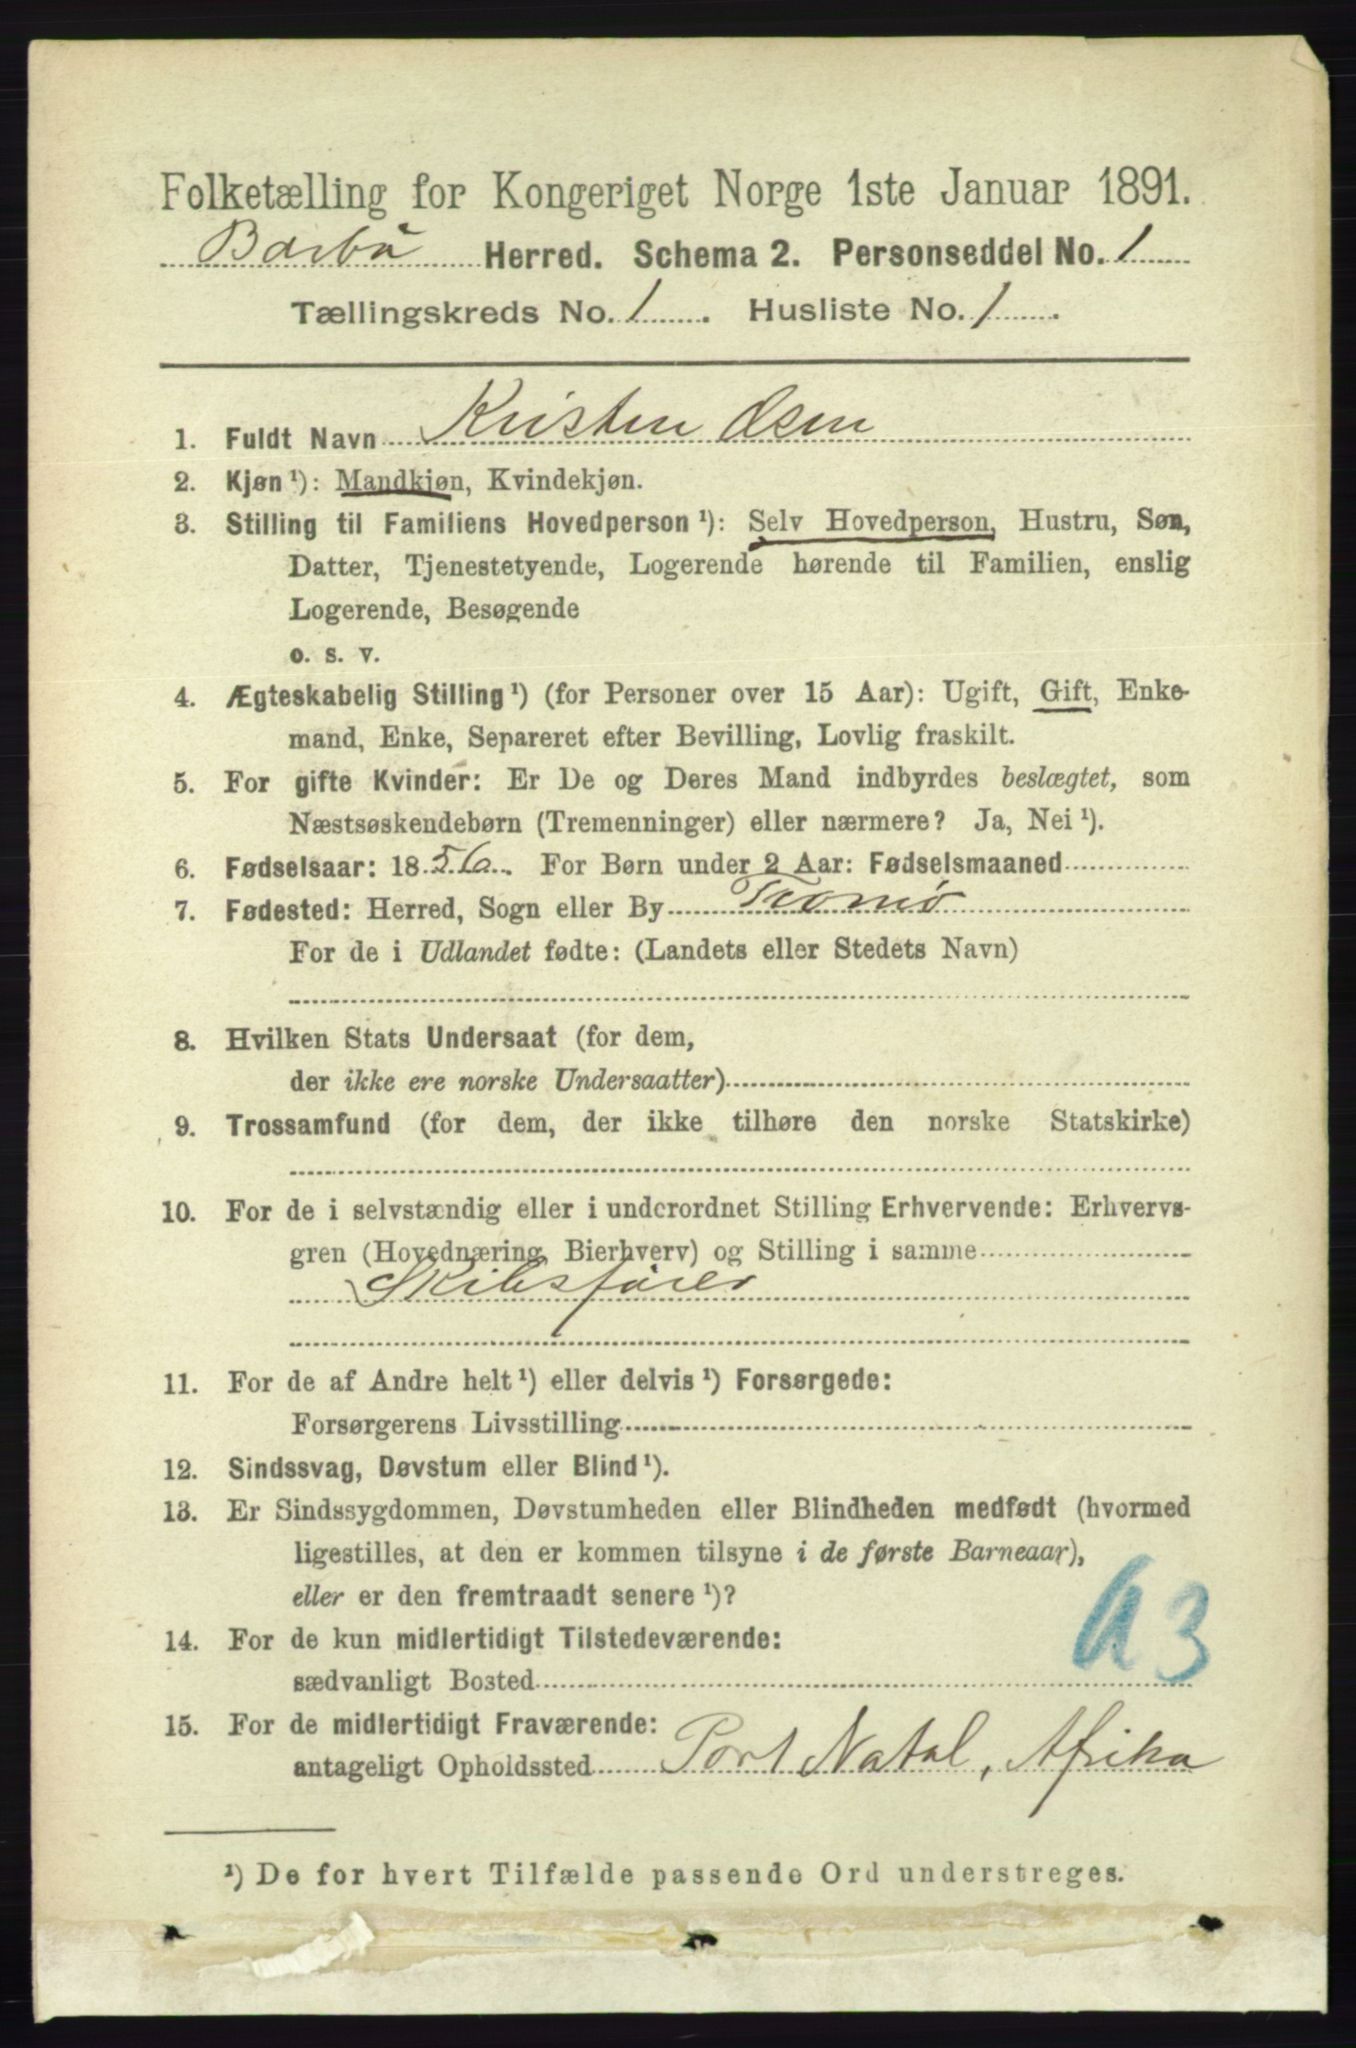 Folketælling for Kongeriget Norge 1ste Januar 1891.
Barbo Herred. Schema 2. Personseddel No. 1
Tællingskreds No. 1. Husliste No. 1.
1. Fuldt Navn Kristen Osen
2. Kjøn ¹): Mandkjøn, Kvindekjøn.
3. Stilling til Familiens Hovedperson ¹): Selv Hovedperson, Hustru, Søn,
Datter, Tjenestetyende, Logerende hørende til Familien, enslig
Logerende, Besøgende
o. s. v.
4. Ægteskabelig Stilling ¹) (for Personer over 15 Aar): Ugift, Gift, Enke-
mand, Enke, Separeret efter Bevilling, Lovlig fraskilt.
5. For gifte Kvinder: Er De og Deres Mand indbyrdes beslægtet, som
Næstsøskendebørn (Tremenninger) eller nærmere? Ja, Nei ¹).
6. Fødselsaar: 1856. For Børn under 2 Aar: Fødselsmaaned
7. Fødested: Herred, Sogn eller By Tromø
For de i Udlandet fødte: (Landets eller Stedets Navn)
8. Hvilken Stats Undersaat (for dem,
der ikke ere norske Undersaatter)
9. Trossamfund (for dem, der ikke tilhøre den norske Statskirke)
10. For de i selvstændig eller i underordnet Stilling Erhvervende: Erhvervs-
gren (Hovednæring, Bierhverv) og Stilling i samme
Skibsfører
11. For de af Andre helt ¹) eller delvis ¹) Forsørgede:
Forsørgerens Livsstilling
12. Sindssvag, Døvstum eller Blind ¹).
13. Er Sindssygdommen, Døvstumheden eller Blindheden medfødt (hvormed
ligestilles, at den er kommen tilsyne i de første Barneaar),
eller er den fremtraadt senere ¹)?
14. For de kun midlertidigt Tilstedeværende:
sædvanligt Bosted
15. For de midlertidigt Fraværende:
antageligt Opholdssted Port Natal, Afrika
¹) De for hvert Tilfælde passende Ord understreges.